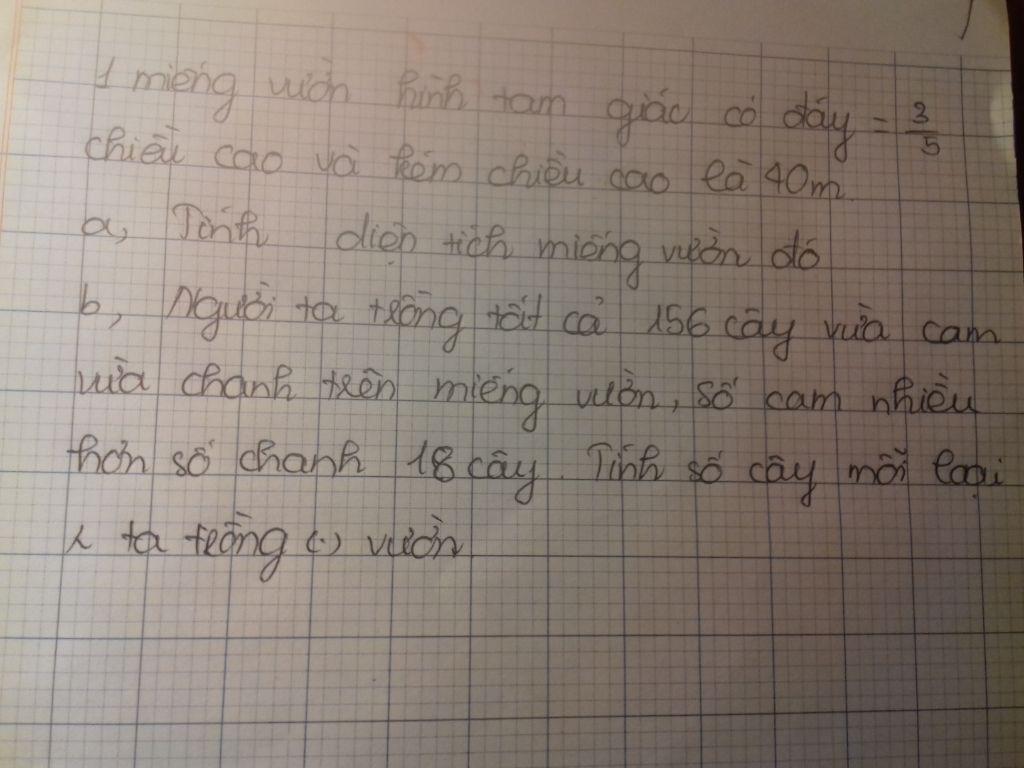 1 miếng vườn hình tam giác có đáy = 3/5
chiều cao và kém chiều cao là 40m
a, Tính diện tích miếng vườn đó
b, Người ta trồng tất cả 156 cây vừa cam
vừa chanh trên miếng vườn, số cam nhiều
hơn số chanh 18 cây. Tính số cây mỗi loại
ta trồng (.) vườn